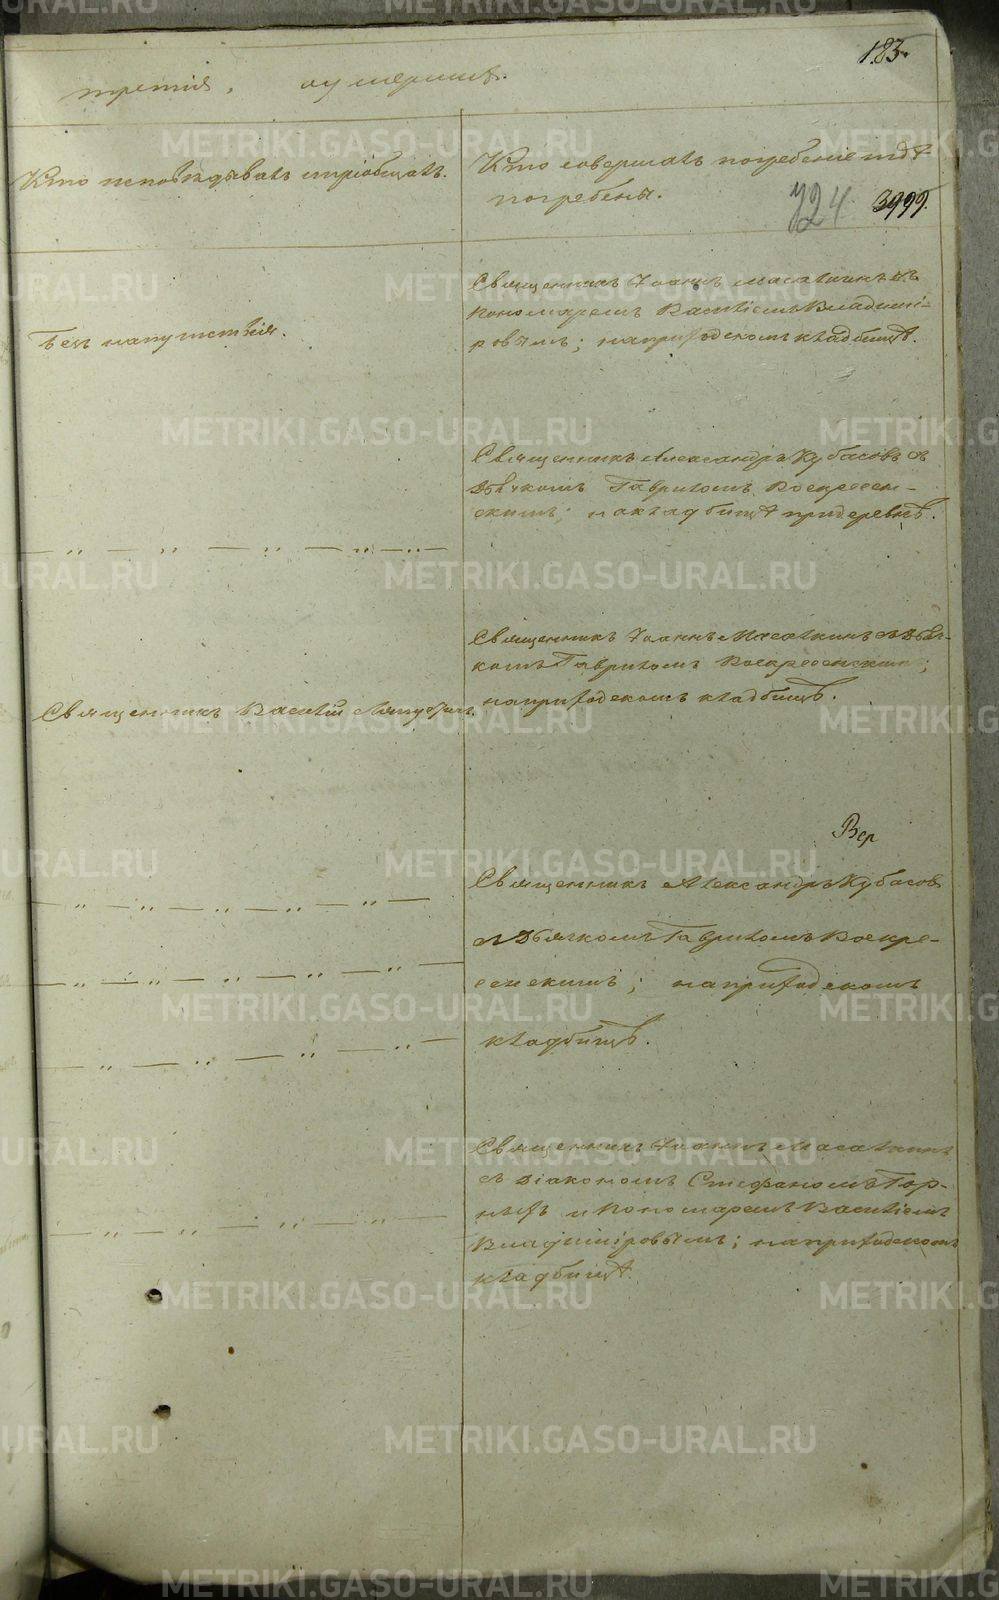 183.
третія, о умершихъ.
Кто исповѣдывалъ и пріобщалъ.
Кто совершалъ погребеніе и гдѣ
погребены.
724 3999.
Безъ напутствія.
Священникъ Іоаннъ Масаткинъ съ
Пономаремъ Василіемъ Владимі-
ровымъ; на приходскомъ кладбищѣ.
Священникъ Александръ Кубасовъ съ
Дьячкомъ Гавриломъ Воскресен-
скимъ; на кладбищѣ при деревнѣ.
— „ — „ — „ — „ — „ —
Священникъ Іоаннъ Масаткинъ съ Дьяч-
комъ Гавриломъ Воскресенскимъ;
на приходскомъ кладбищѣ.
Священникъ Василій
Вер
Священникъ Александръ Кубасовъ
съ Дьячкомъ Гавриломъ Воскре-
сенскимъ; на приходскомъ
кладбищѣ.
— „ — „ — „ — „ —
— „ — „ — „ — „ —
— „ — „ — „ — „ —
Священникъ Іоаннъ Масаткинъ
съ Діакономъ Стефаномъ Гор-
ныхъ и Пономаремъ Василіемъ
Владиміровымъ; на приходскомъ
кладбищѣ.
— „ — „ — „ — „ —
METRIKI.GASO-URAL.RU